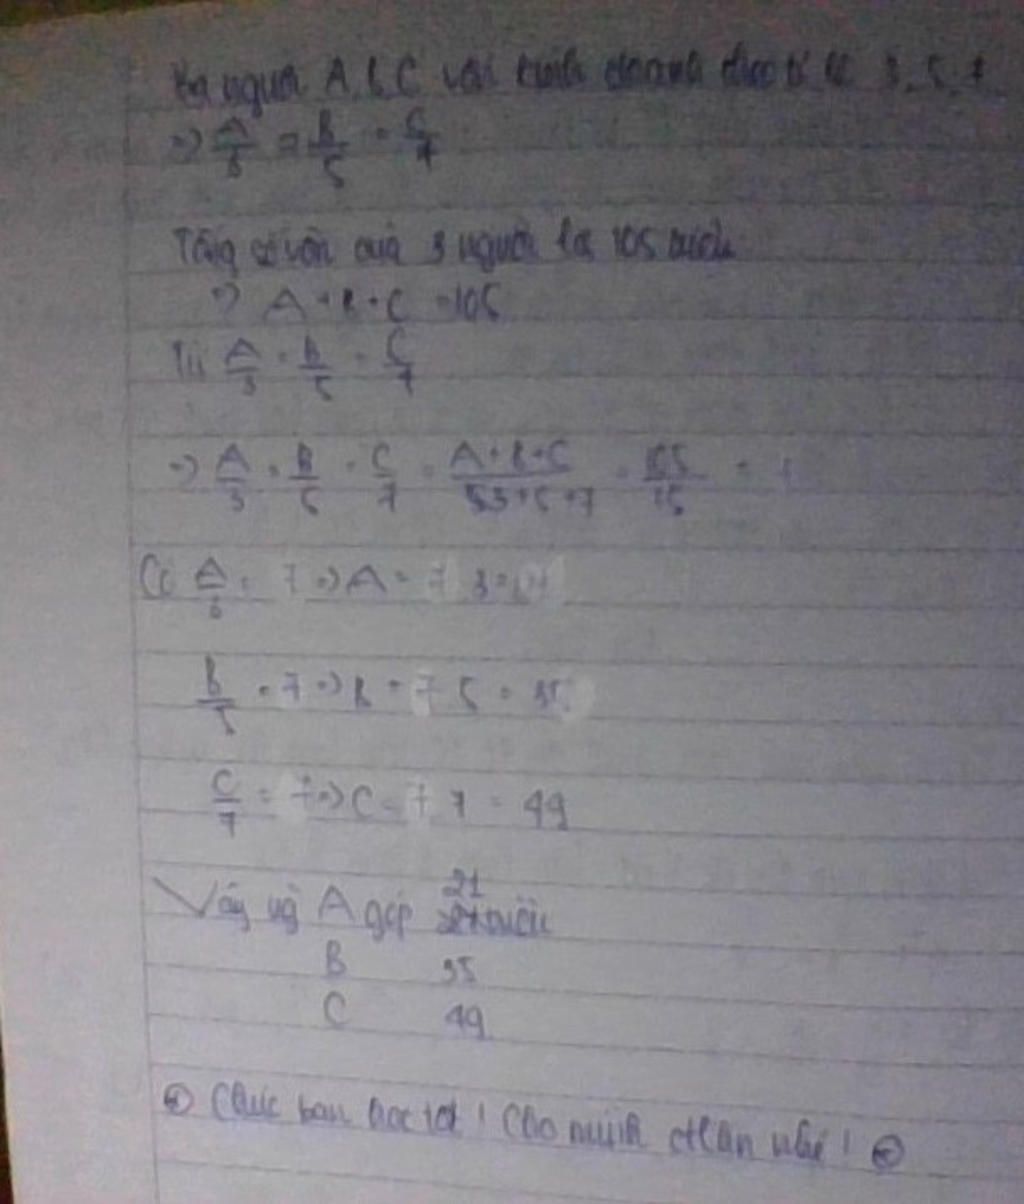 Ba người A, B, C vốn kinh doanh theo tỉ lệ 3, 5, 7
=> A/3 = B/5 = C/7
Tổng số vốn của 3 người là 105 triệu
=> A + B + C = 105
Từ A/3 = B/5 = C/7
=> A/3 = B/5 = C/7 = A+B+C/3+5+7 = 105/15 =
Có A/3 = 7 => A = 7 3 = 21
B/5 = 7 => B = 7 5 = 35
C/7 = 7 => C = 7 7 = 49
Vậy ng A góp 21 triệu
B 35
C 49
Chúc bạn học tốt! Cho mình ctlhn nhé!